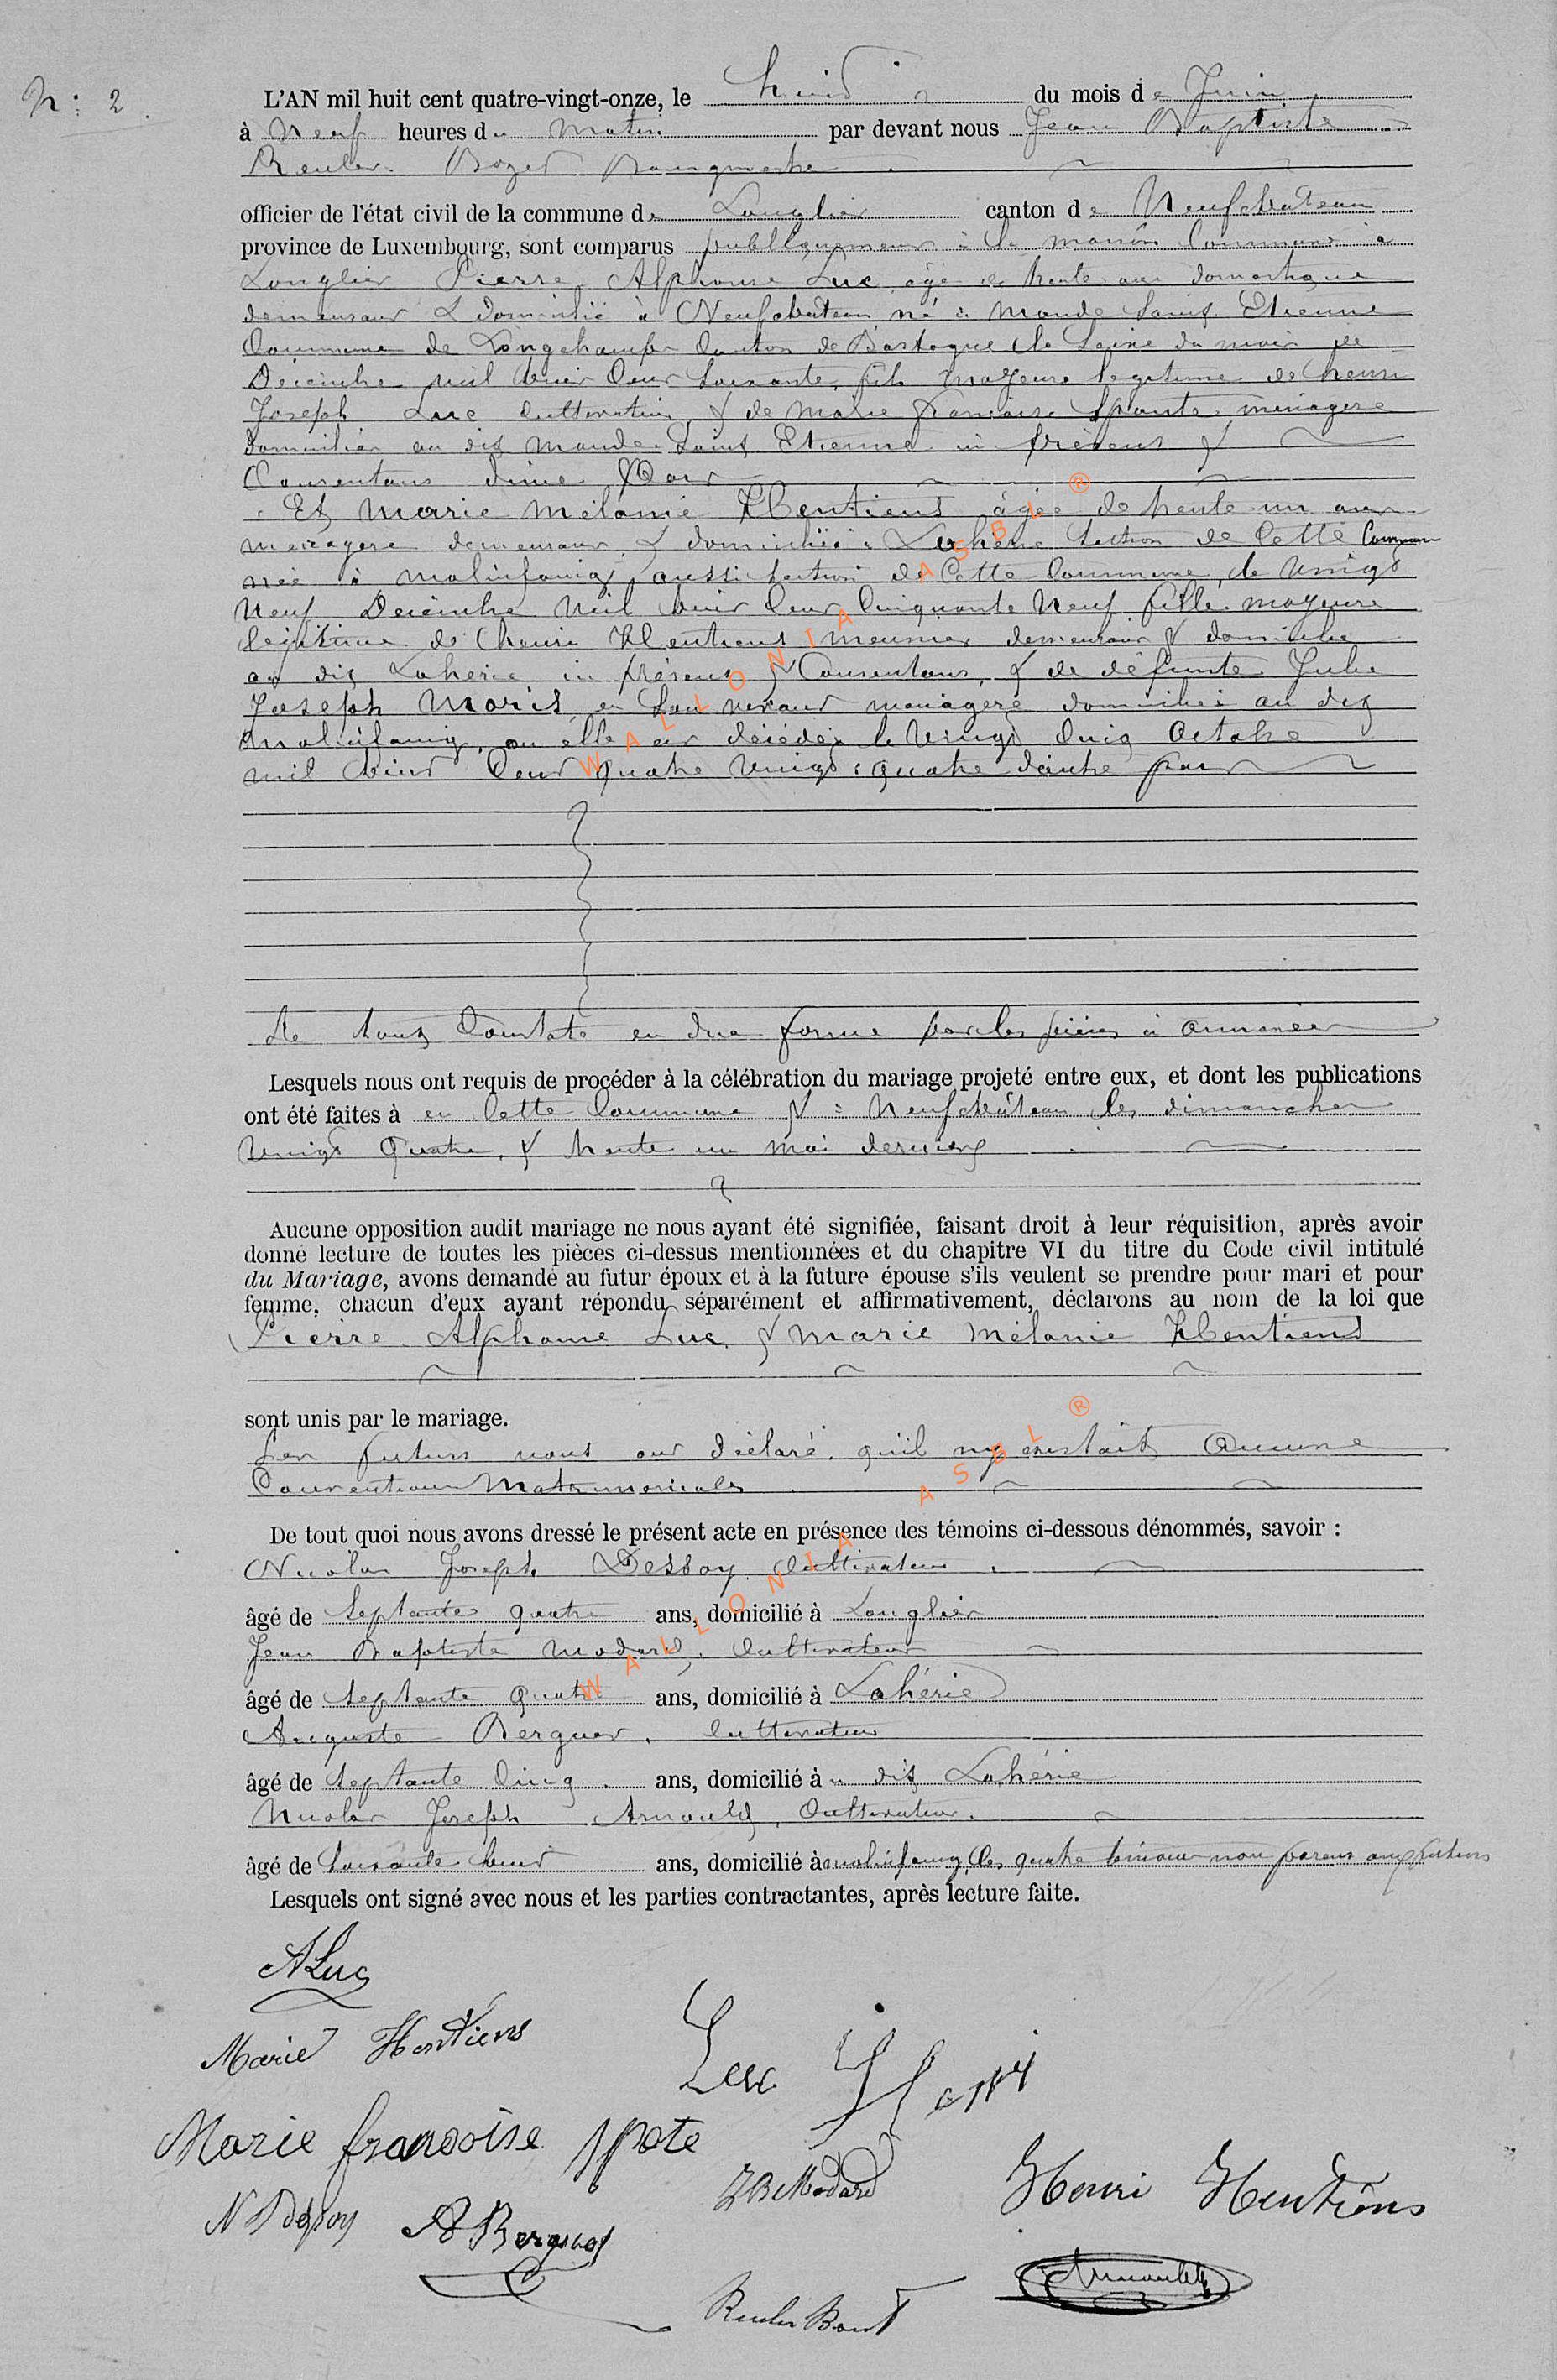 N: 2.
L'AN mil huit cent quatre-vingt-onze, le huit du mois de Juin
à Neuf heures du Matin par devant nous Jean Baptiste
Reuler Bourgmestre
officier de l'état civil de la commune de Longlier canton de Neufchateau
province de Luxembourg, sont comparus publiquement à la maison Commune à
Longlier Pierre Alphonse Luc, âgé de trente ans domestique
demeurant & Domicilié à Neufchateau, né à Mande Saint Etienne
Commune de Longchamps Canton de Bastogne le Seize du mois de
Décembre mil huit Cent Soixante, fils majeure légitime de henri
Joseph Luc Cultivateur & de Marie françoise Spaute ménagère
domiciliés au dit Mande Saint Etienne ici présens &
Consentans d'une Part
Et Marie Mélanie Hentiens âgée de trente un ans
ménagère demeurant & domiciliée à Lahérie Section de Cette Commune
née à Molinfaing, aussi Section de Cette Commune, le Vingt
Neuf Décembre Mil huit Cent Cinquante Neuf fille majeure
légitime de henri Hentiens meunier demeurant & domicilié
au dit Lahérie ici présent & Consentant, & de défunte Julie
Joseph Moris, en Son vivant ménagère domiciliée au dit
Molinfaing, où elle est décédée le Vingt Cinq Octobre
mil huit Cent quatre Vingt quatre d'autre part
Le tout Constaté en due forme par les pièces à annexer
Lesquels nous ont requis de procéder à la célébration du mariage projeté entre eux, et dont les publications
ont été faites à en Cette Commune & à Neufchâteau les dimanches
Vingt Quatre & trente un mai derniers
Aucune opposition audit mariage ne nous ayant été signifiée, faisant droit à leur réquisition, après avoir
donné lecture de toutes les pièces ci-dessus mentionnées et du chapitre VI du titre du Code civil intitulé
du Mariage, avons demandé au futur époux et à la future épouse s'ils veulent se prendre pour mari et pour
femme, chacun d'eux ayant répondu séparément et affirmativement, déclarons au nom de la loi que
Pierre Alphonse Luc & Marie Mélanie Hentiens
sont unis par le mariage.
Les futurs nous ont déclaré qu'il n'y existait Aucune
Convention Matrimoniales
De tout quoi nous avons dressé le présent acte en présence des témoins ci-dessous dénommés, savoir :
Nicolas Joseph Dessoy Cultivateur
âgé de Septante quatre ans, domicilié à Longlier
Jean Baptiste Modard, Cultivateur
âgé de Septante Quatre ans, domicilié à Lahérie
Auguste Berguet, Cultivateur
âgé de Septante Cinq ans, domicilié à u dit Lahérie
Nicolas Joseph Arnould, Cultivateur
âgé de Soixante huit ans, domicilié à molinfaing, les quatre témoins non parens aux futurs
Lesquels ont signé avec nous et les parties contractantes, après lecture faite.
A Luc
Marie Hentiens
Luc Henri
Marie francoise Spote
JB Modard
Henri Hentiens
N Dessoy
A Berguet
Arnould
Reuler
WALLONIA ASBL ®
WALLONIA ASBL ®